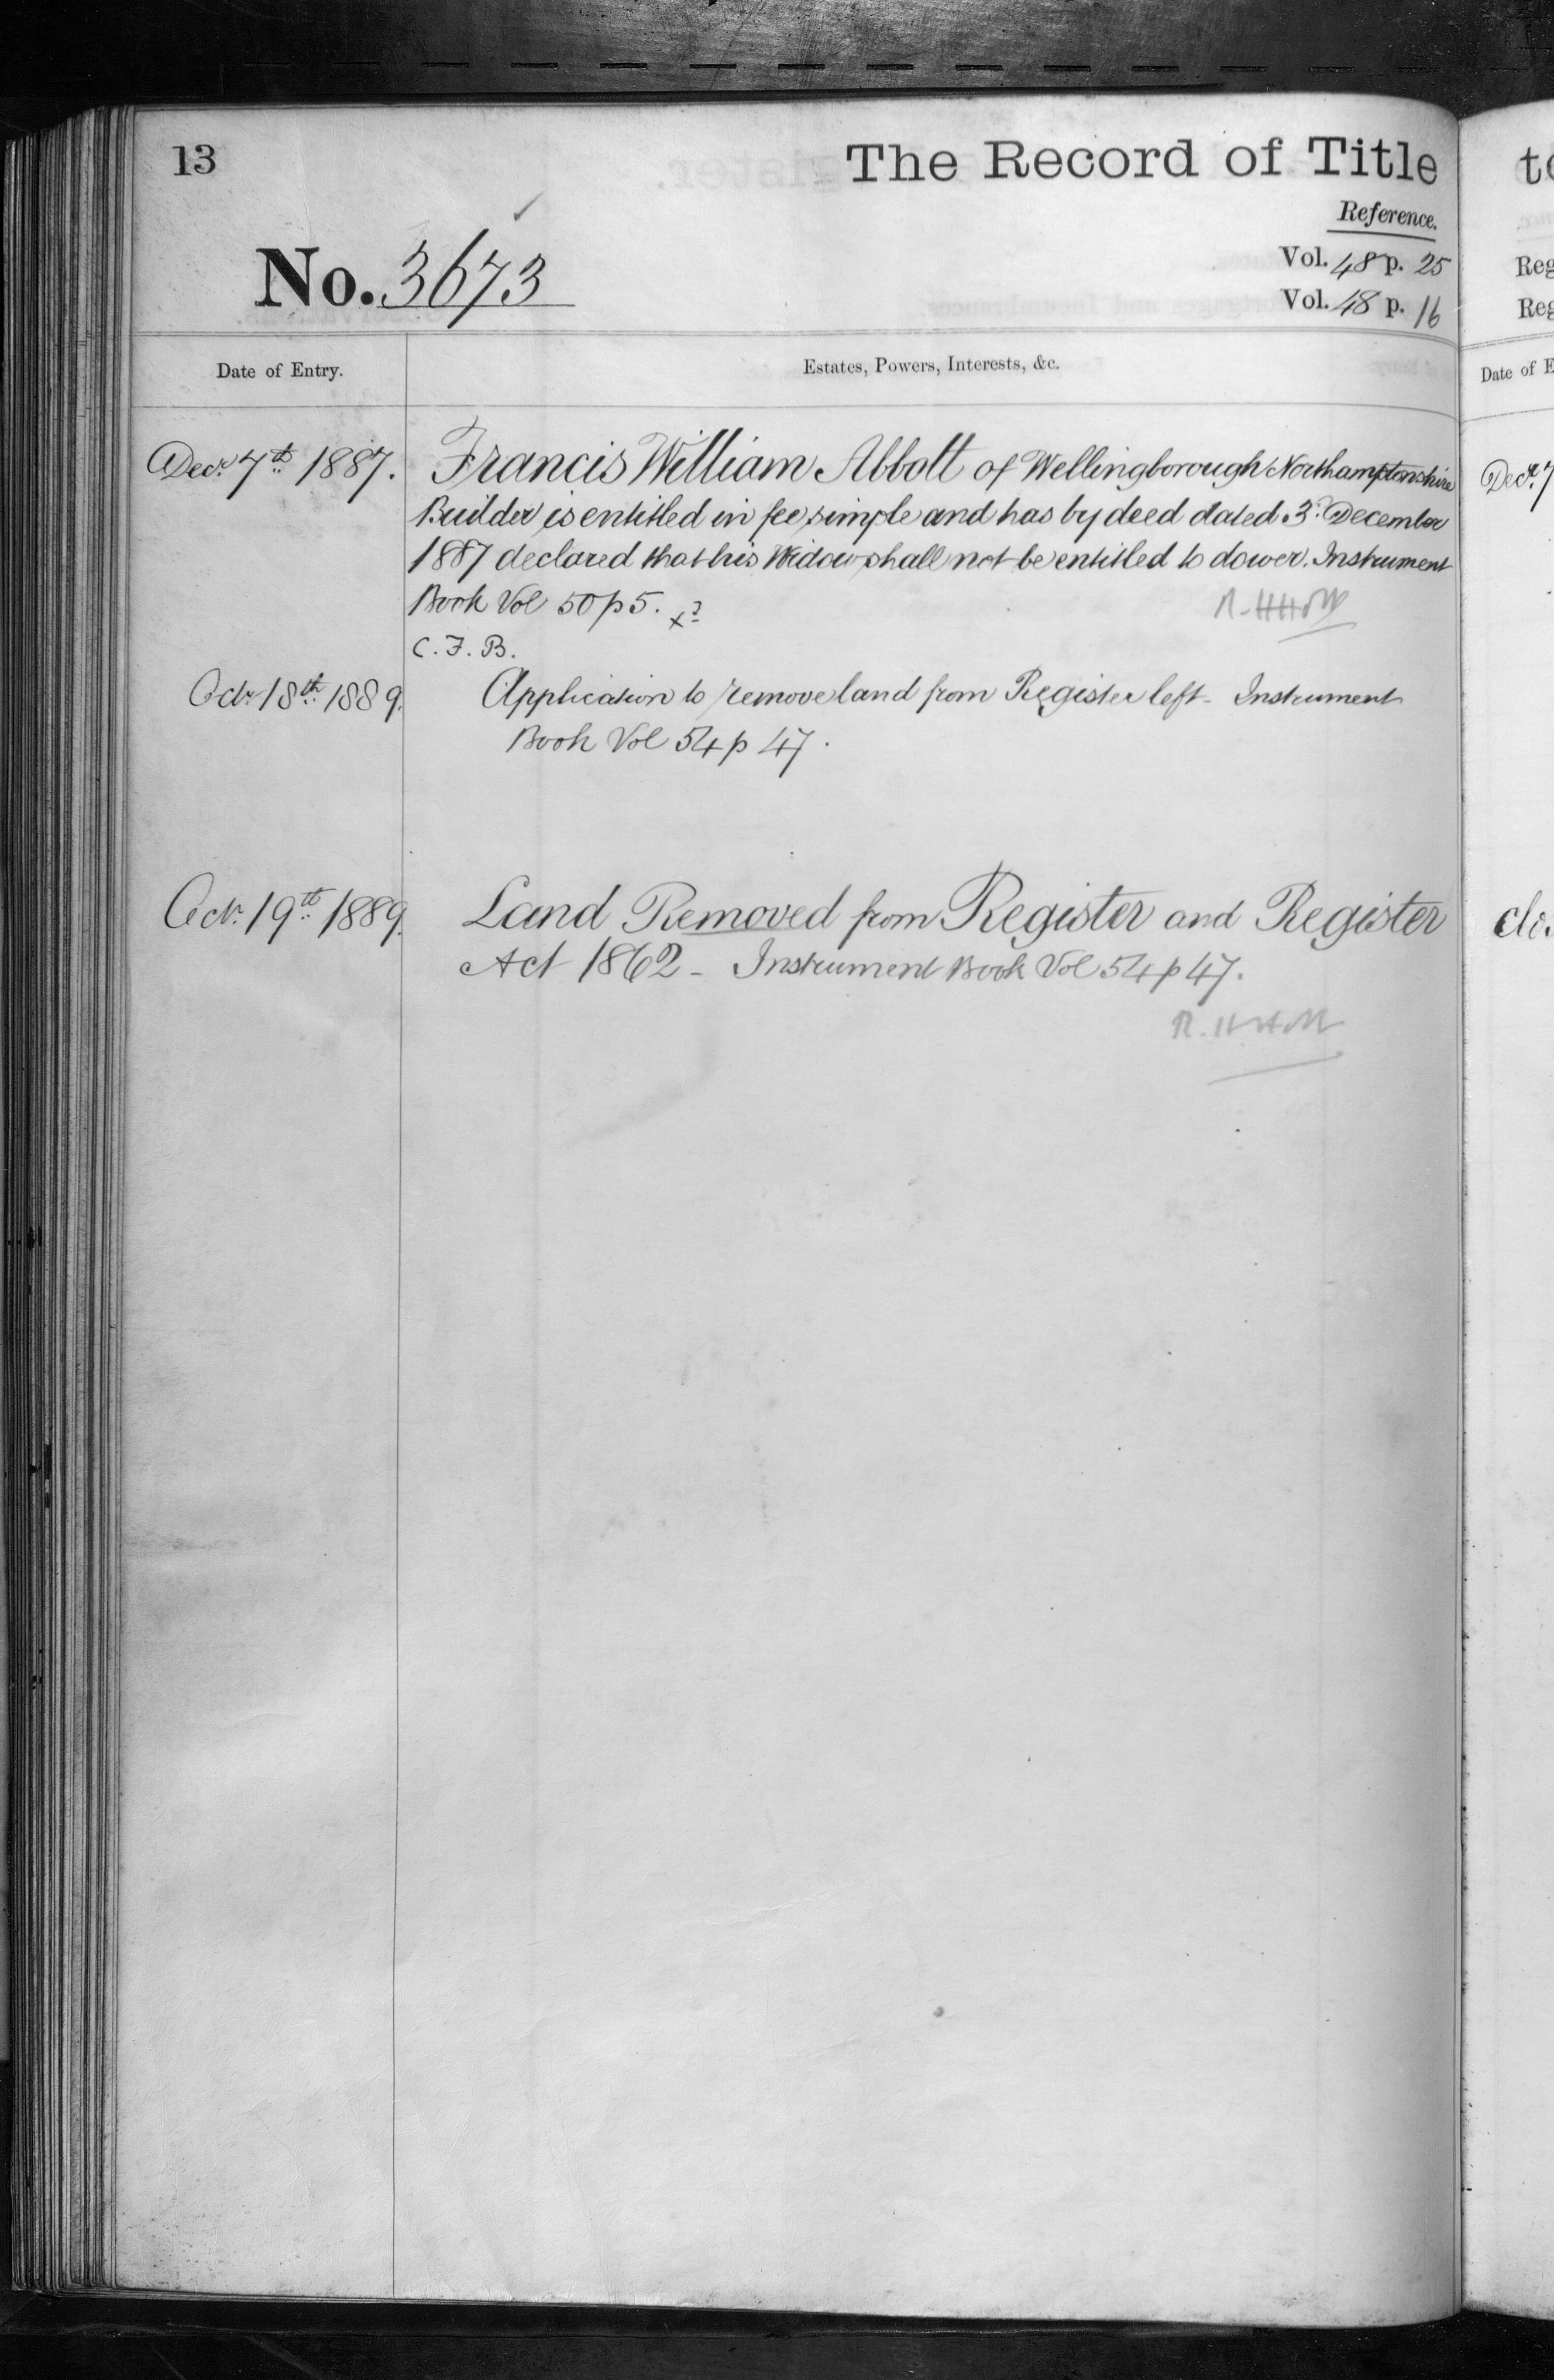 13
The Record of Title
Reference.
No. 3673
Vol. 48 p. 25
Vol. 48 p. 16
Date of Entry.
Estates, Powers, Interests, &c.
Decr. 7th 1887.
Francis William Abbott of Wellingborough Northamptonshire
Builder is entitled in fee simple and has by deed dated 3d. December
1887 declared that his Widow shall not be entitled to dower. Instrument
Book Vol 50 p 5.
C. F. B.
Octr. 18th. 1889.
Application to remove land from Register left - Instrument
Book Vol 54 p 47.
Octr. 19th. 1889.
Land Removed from Register and Register
Act 1862 - Instrument Book Vol 54 p 47.
Reg
Reg
Date of E
Decr. 7
clo